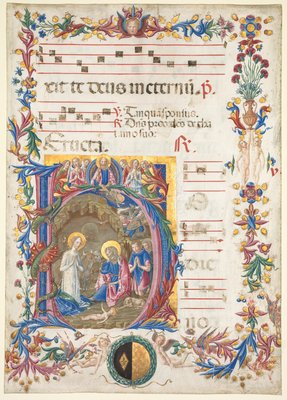 xit te deus in eternū. P.
V. Tanquā sponsus.
R. Dns procedēs de tha
lamo suo.
Eructa. R.
H
O
DIE
NO